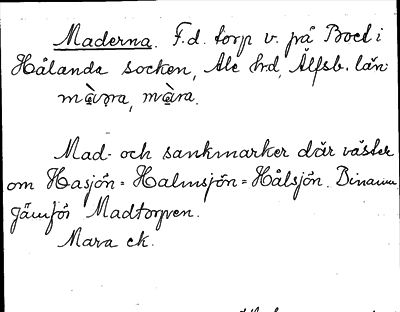 Maderna. F.d. torp v. på Boet i
Hålanda socken, Ale hd, Älfsb. län.
Mad- och sankmarker där väster
om Hasjön = Halmsjön = Hålsjön. Binamn
Jämför Madtorpen.
Mara ek.